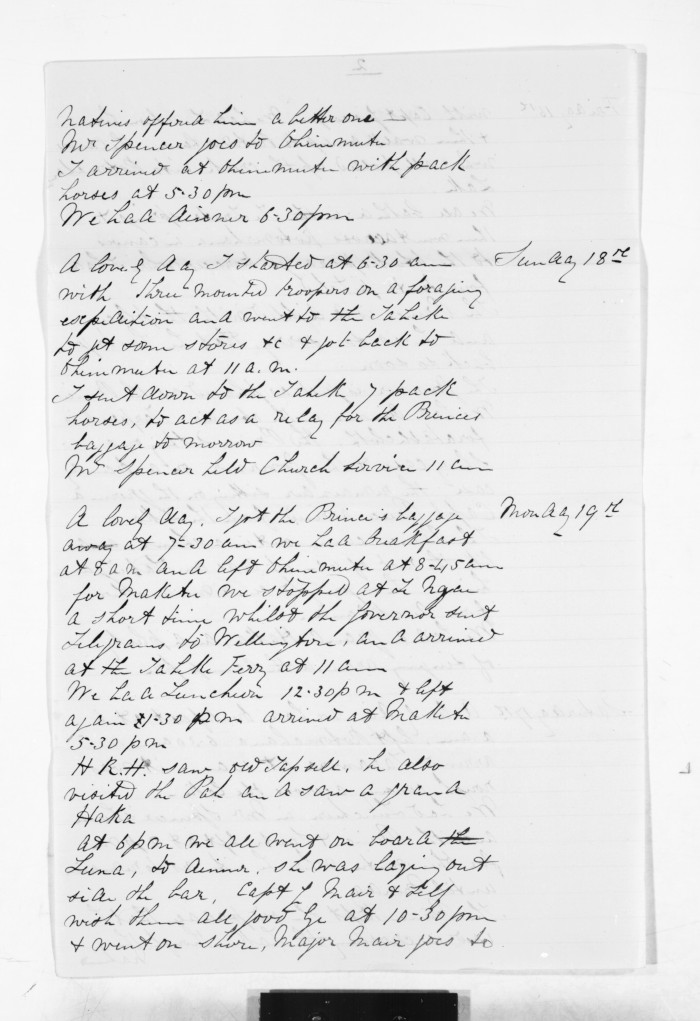 2
natives offered him a better one
Mr Spencer goes to Ohinemutu
I arrived at Ohinemutu with pack
horses at 5-30 pm
We had dinner 6-30 pm
A lovely day I started at 6-30 am Sunday 18th
with three mounted troopers on a foraging
expedition and went to the Taheke
to get some stores &c & got back to
Ohinemutu at 11 a.m.
I sent down to the Taheke 7 pack
horses, to act as a relay for the Princes
baggage to morrow
Mr Spencer held Church Service 11 am
A lovely day, I got the Prince's baggage Monday 19th
away at 7-30 am we had breakfast
at 8 am and left Ohinemutu at 8-45 am
for Maketu we stopped at Te Ngae
a short time whilst the Governor sent
Telegrams to Wellington, and arrived
at the Taheke Ferry at 11 am
We had Luncheon 12-30 pm & left
again 1-30 pm arrived at Maketu
5-30 pm
H.R.H. saw old Tapsell, he also
visited the Pah and saw a grand
Haka
at 6 pm we all went on board the
Luna, to dinner, she was laying out
side the bar, Capt G Mair & self
wish them all good bye at 10-30 pm
& went on shore, Major Mair goes to